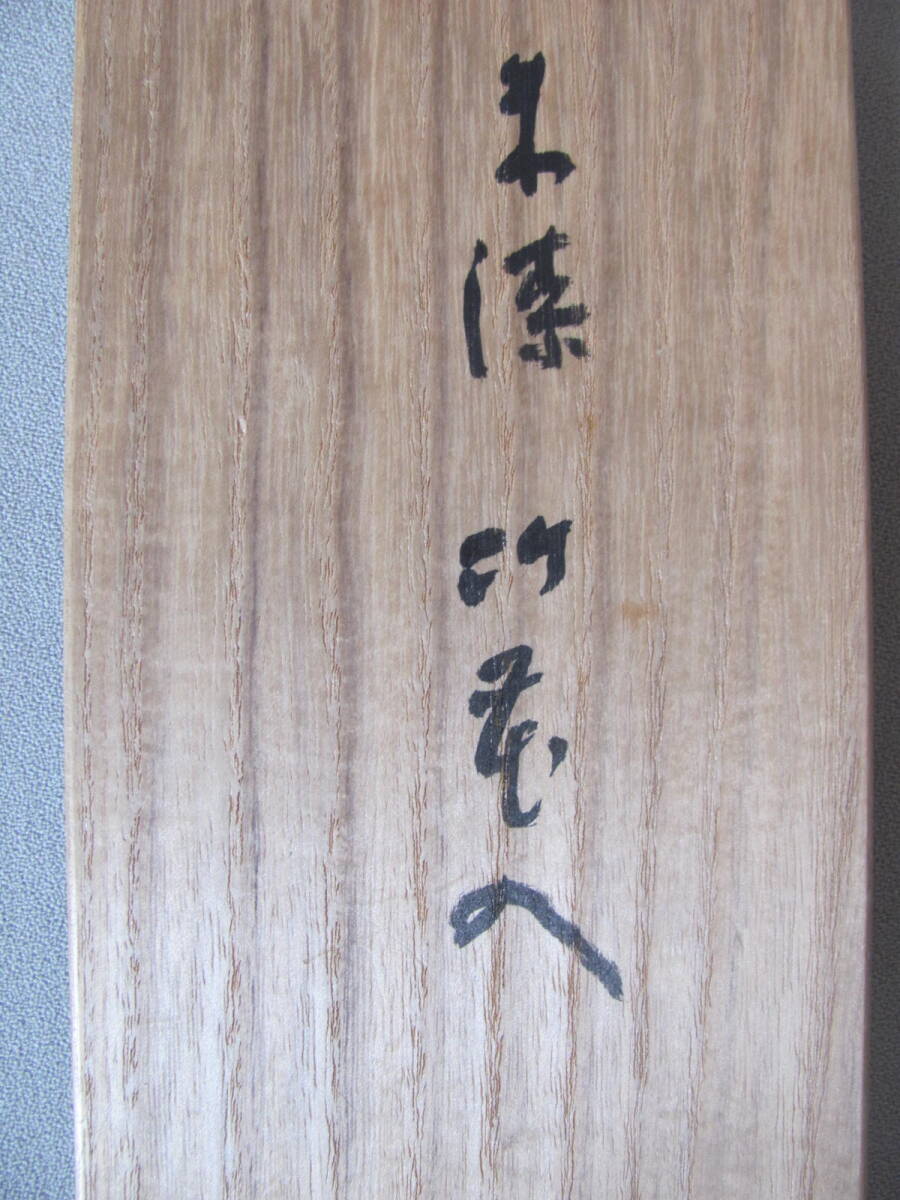 朱漆 竹花入